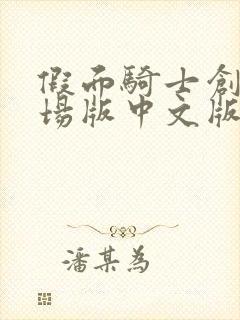 假面騎士創
場版中文版
潘某為